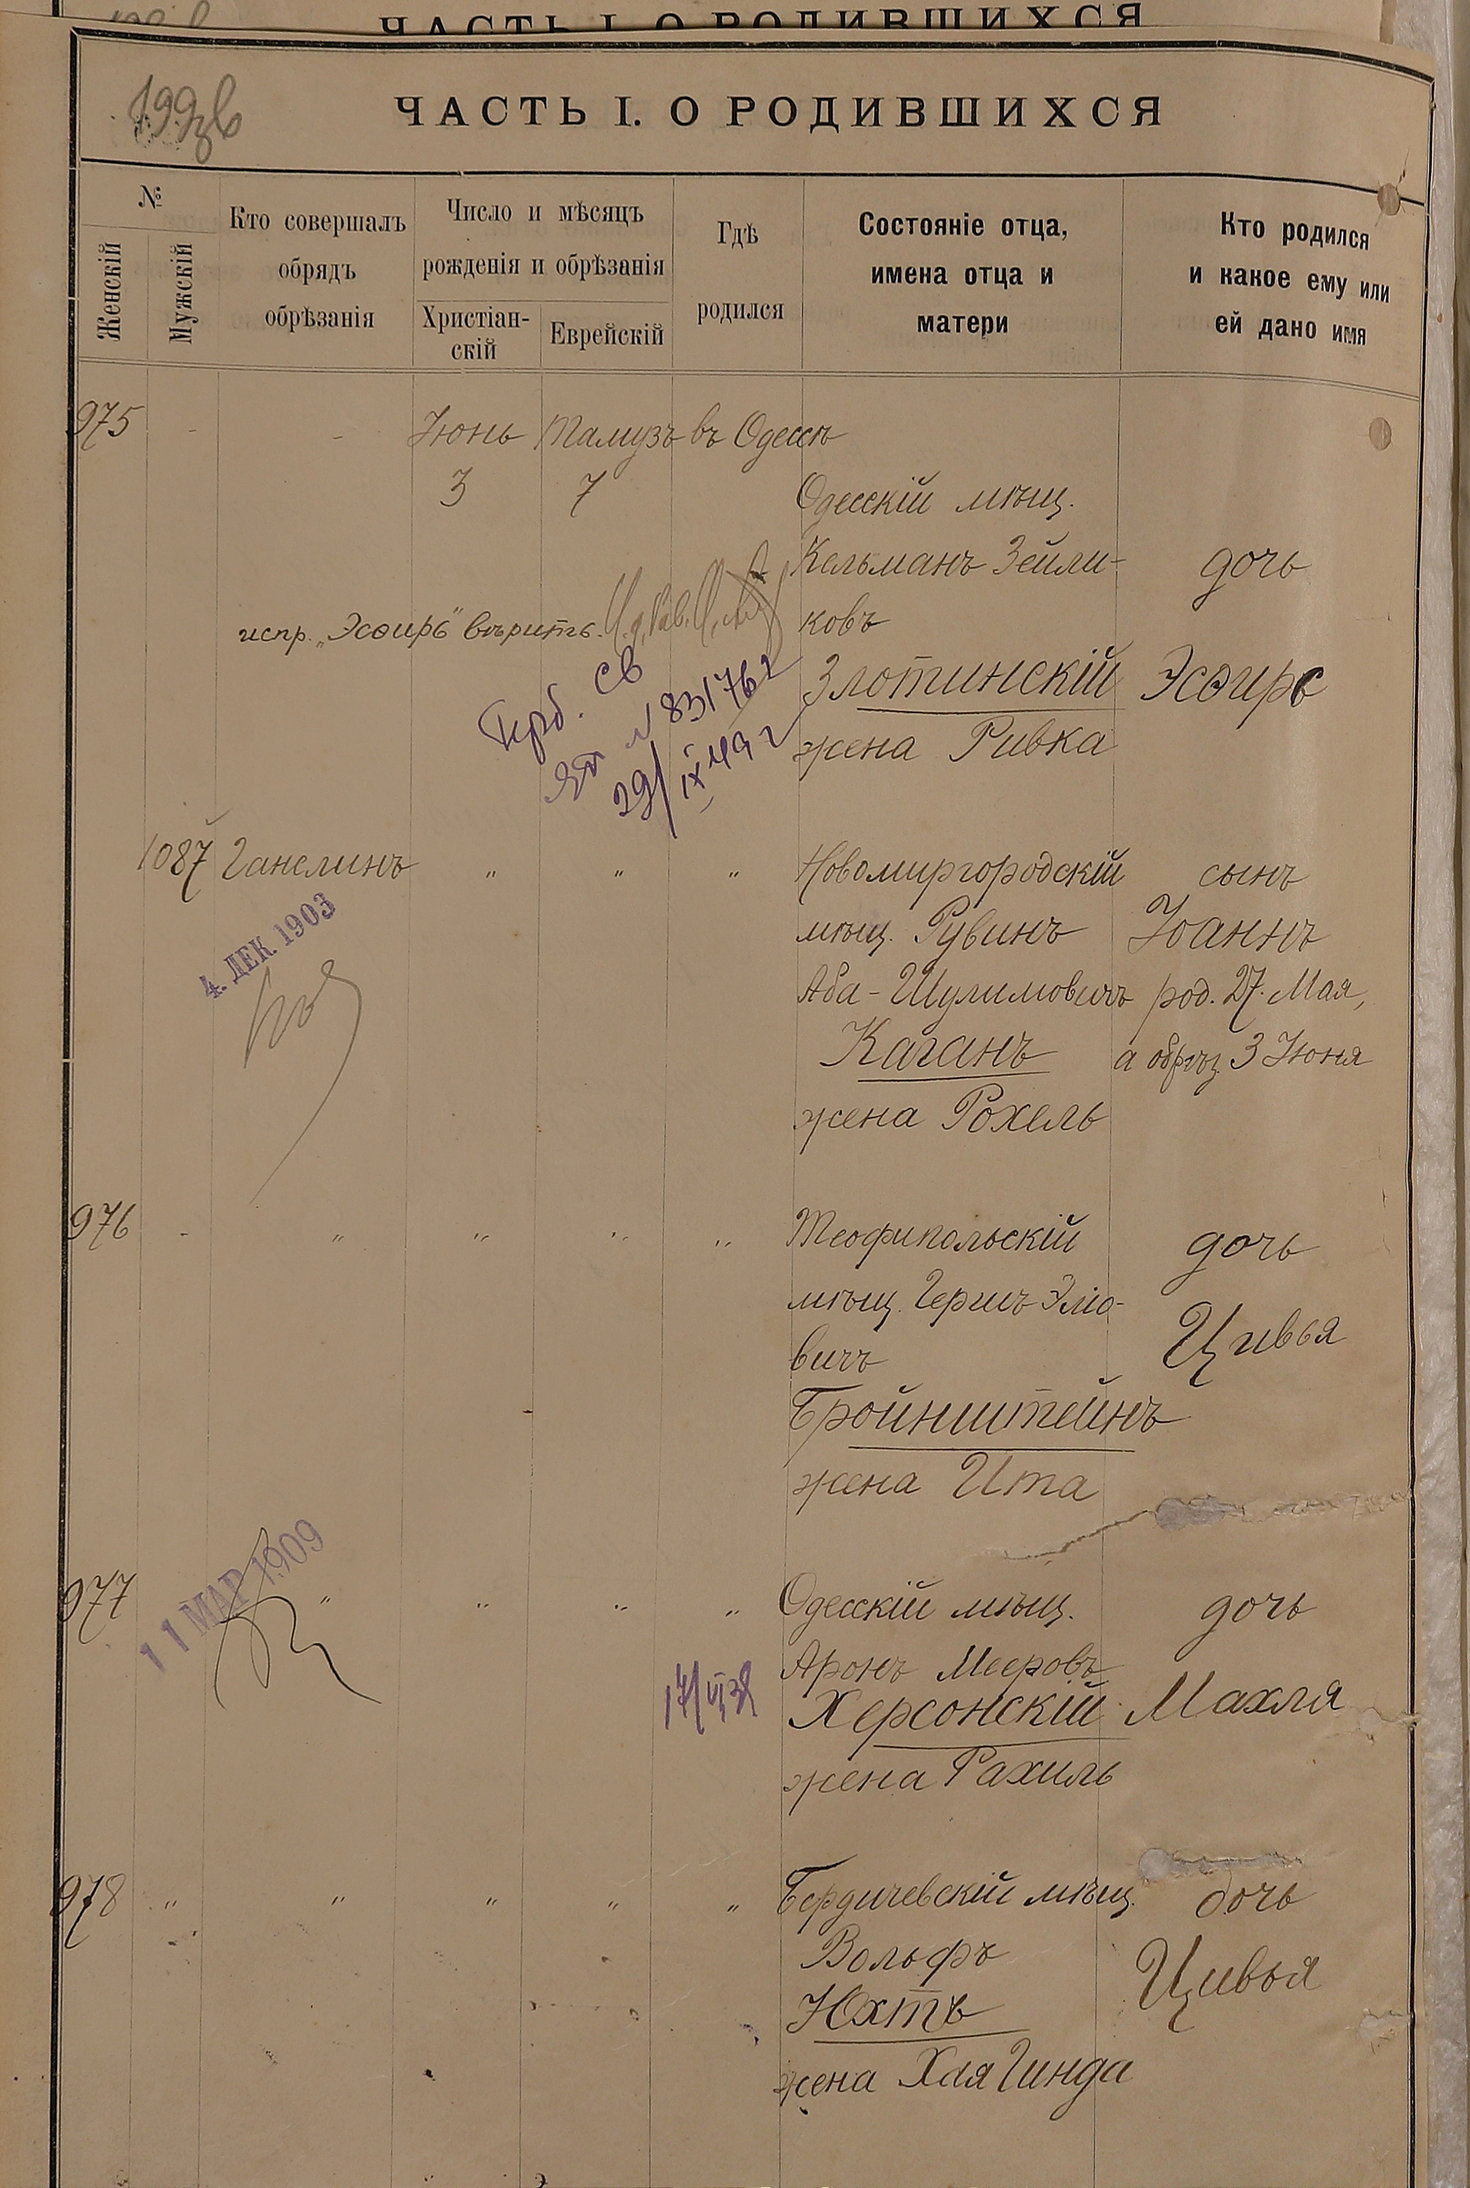 ЧАСТЬ I. О РОДИВШИХСЯ
ЧАСТЬ I. О РОДИВШИХСЯ
№
Женскій
Мужскій
Кто совершалъ
обрядъ
обрѣзанія
Число и мѣсяцъ
рожденія и обрѣзанія
Христіан-
скій
Еврейскій
Гдѣ
родился
Состояніе отца,
имена отца и
матери
Кто родился
и какое ему или
ей дано имя
975 - - Іюнь Тамузъ въ Одессѣ
3 7
Одесскій мѣщ.
Кельманъ Зейли-
ковъ
Злотинскій
жена Ривка
дочь
Эсѳирь
испр. „Эсѳирь" вѣрить.
№ 831762
29/IX 49 г
1087 Ганелинъ " " "
Новомиргородскій
мѣщ. Рувинъ
Аба-Шулимовичъ
Каганъ
жена Рохель
сынъ
Іоаннъ
род. 27 Мая,
а обрѣз. 3 Іюня
4. ДЕК. 1903
976 - " " " "
Теофипольскій
мѣщ. Гершъ Эліо-
вичъ
Бройнштейнъ
жена Ита
дочь
Цивья
977 " " " "
11 МАР 1909
Одесскій мѣщ.
Аронъ Мееровъ
Херсонскій
жена Рахиль
дочь
Махля
978 " " " " "
Бердичевскій мѣщ.
Вольфъ
Юхтъ
жена Хая Гинда
дочь
Цивья